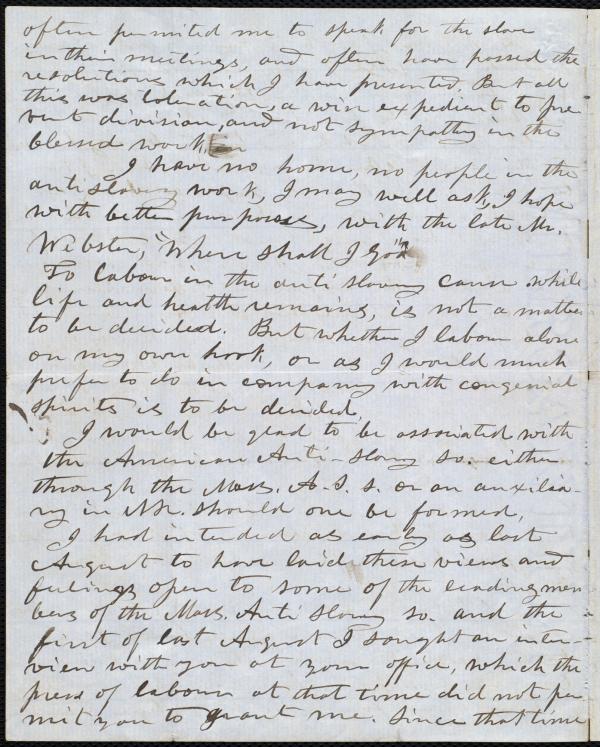 often permitted me to speak for the slave
in their meetings, and often have passed the
resolutions which I have presented. But all
this was toleration, a wise expedient to pre
vent division, and not sympathy in the
blessed work.
I have no home, no people in the
anti slavery work, I may well ask, I hope
with better purposes, with the late Mr.
Webster, "Where shall I go"
To labour in the anti slavery cause while
life and health remains, is not a matter
to be decided. But whether I labour alone
on my own hook, or as I would much
prefer to do in company with congenial
spirits is to be decided.
I would be glad to be associated with
the American Anti-Slavery So. either
through the Mass. A. S. S. or an auxilia-
ry in  should one be formed,
I had intended as early as last
August to have laid these views and
feelings open to some of the leading mem
bers of the Mass. Anti Slavery So. and the
first of last August I sought an inter-
view with you at your office, which the
press of labour at that time did not per
mit you to grant me. Since that time